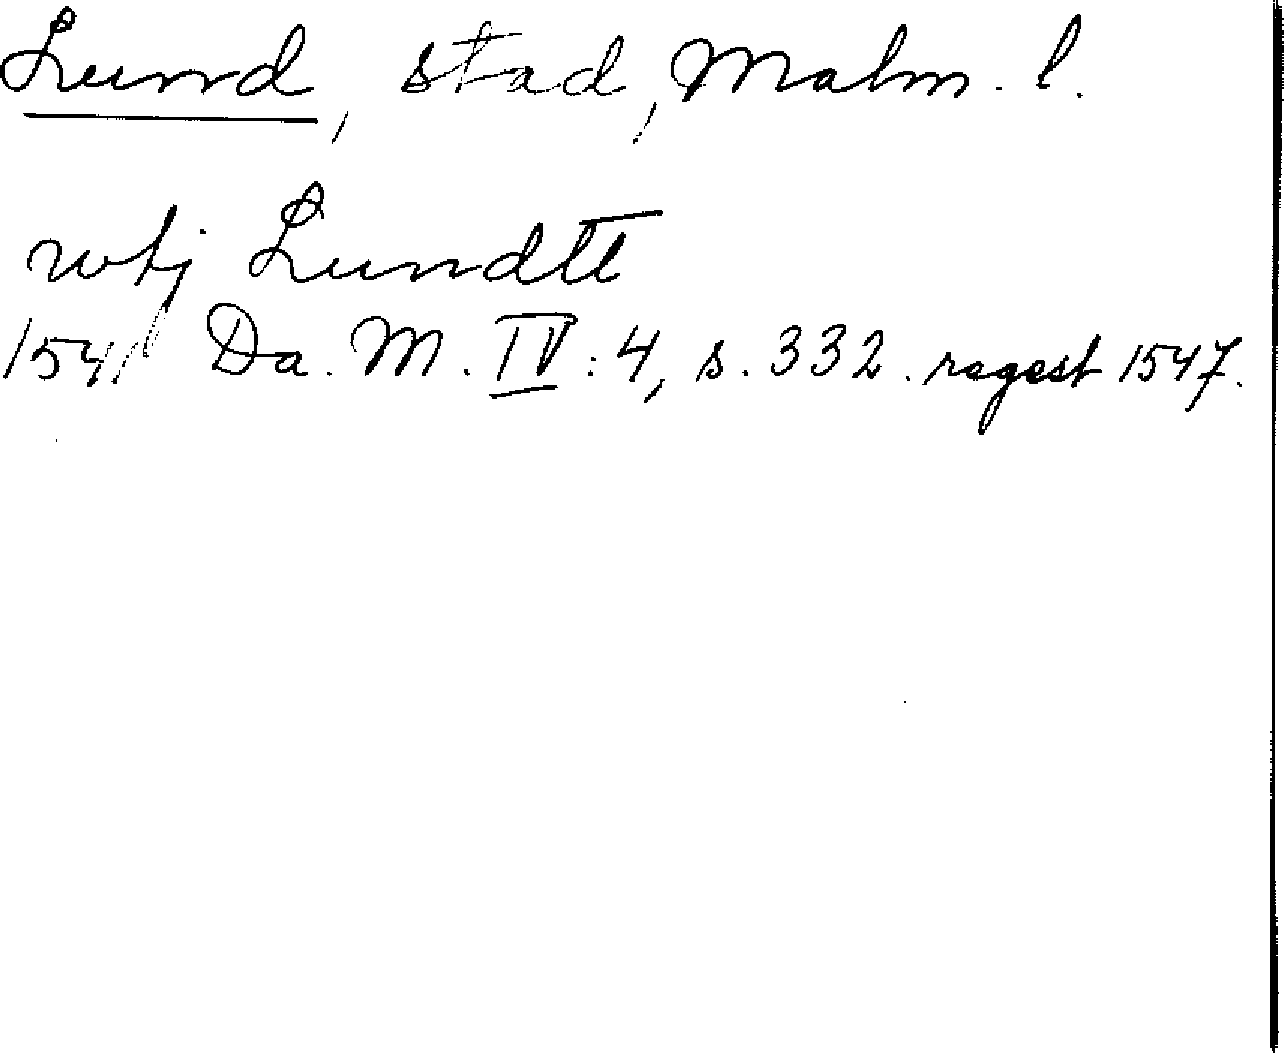 Lund, stad, Malm. l.
wtj Lundtt
1541 Da. M. IV: 4, s. 332. regest 1547.